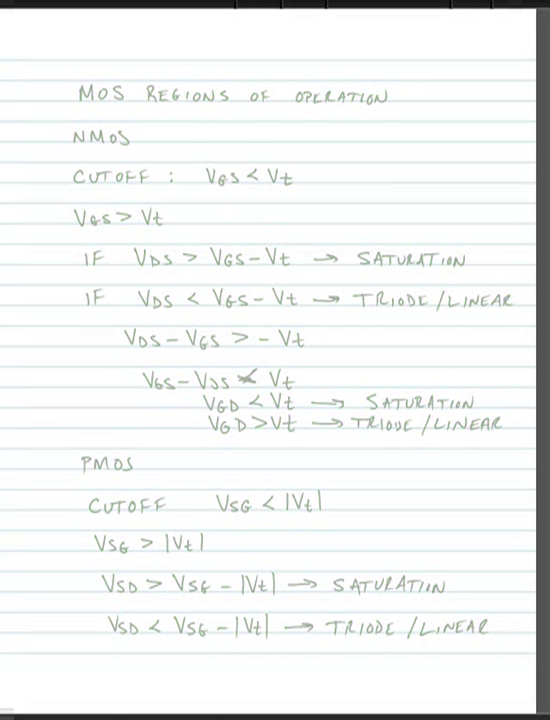 MOS REGIONS OF OPERATION
NMOS
CUTOFF : VGS < Vt
VGS > Vt
IF VDS > VGS - Vt → SATURATION
IF VDS < VGS - Vt → TRIODE/LINEAR
VDS - VGS > - Vt
VGS - VDS < Vt
VGD < Vt → SATURATION
VGD > Vt → TRIODE/LINEAR
PMOS
CUTOFF VSG < |Vt|
VSG > |Vt|
VSD > VSG - |Vt| → SATURATION
VSD < VSG - |Vt| → TRIODE/LINEAR